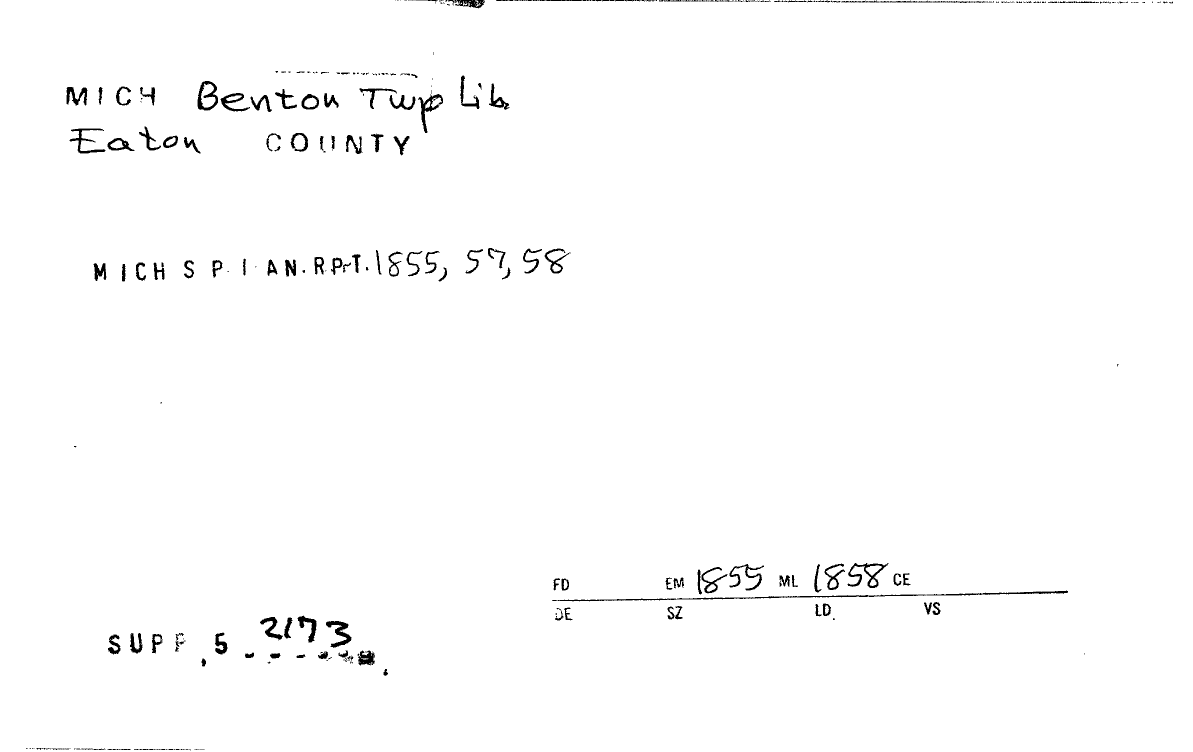 MICH Benton Twp Lib.
Eaton COUNTY
MICH S P I AN. RPT. 1855, 57, 58
FD EM 1855 ML 1858 CE
DE SZ LD. VS
SUPP. 5 2173